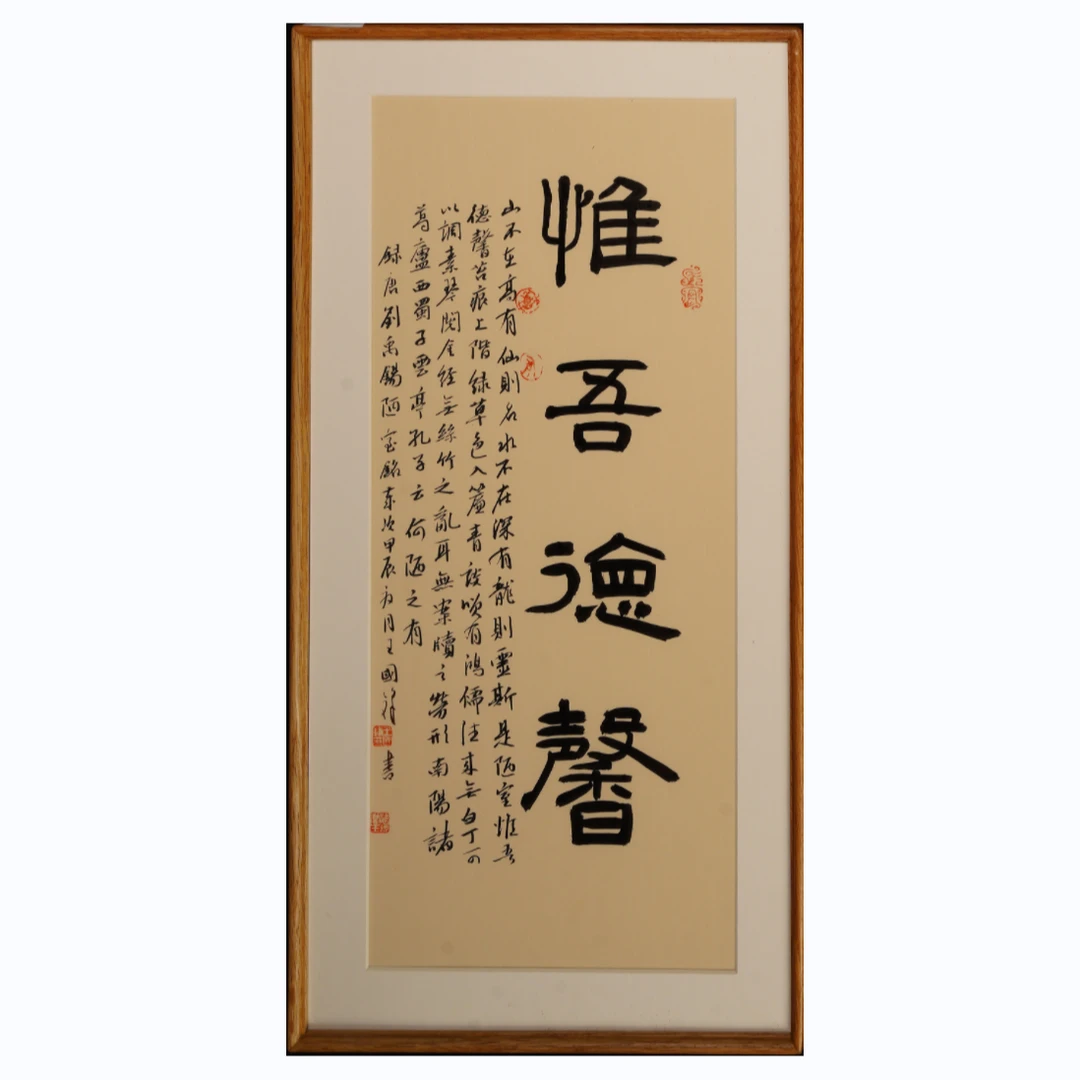 惟吾德馨
山不在高有仙則名水不在深有龍則靈斯是陋室惟吾
德馨苔痕上階緑草色入簾青談笑有鴻儒往來無白丁可
以調素琴閱金經無絲竹之亂耳無案牘之勞形南陽諸
葛廬西蜀子雲亭孔子云何陋之有
録唐劉禹錫陋室銘歲次甲辰月王國祥書